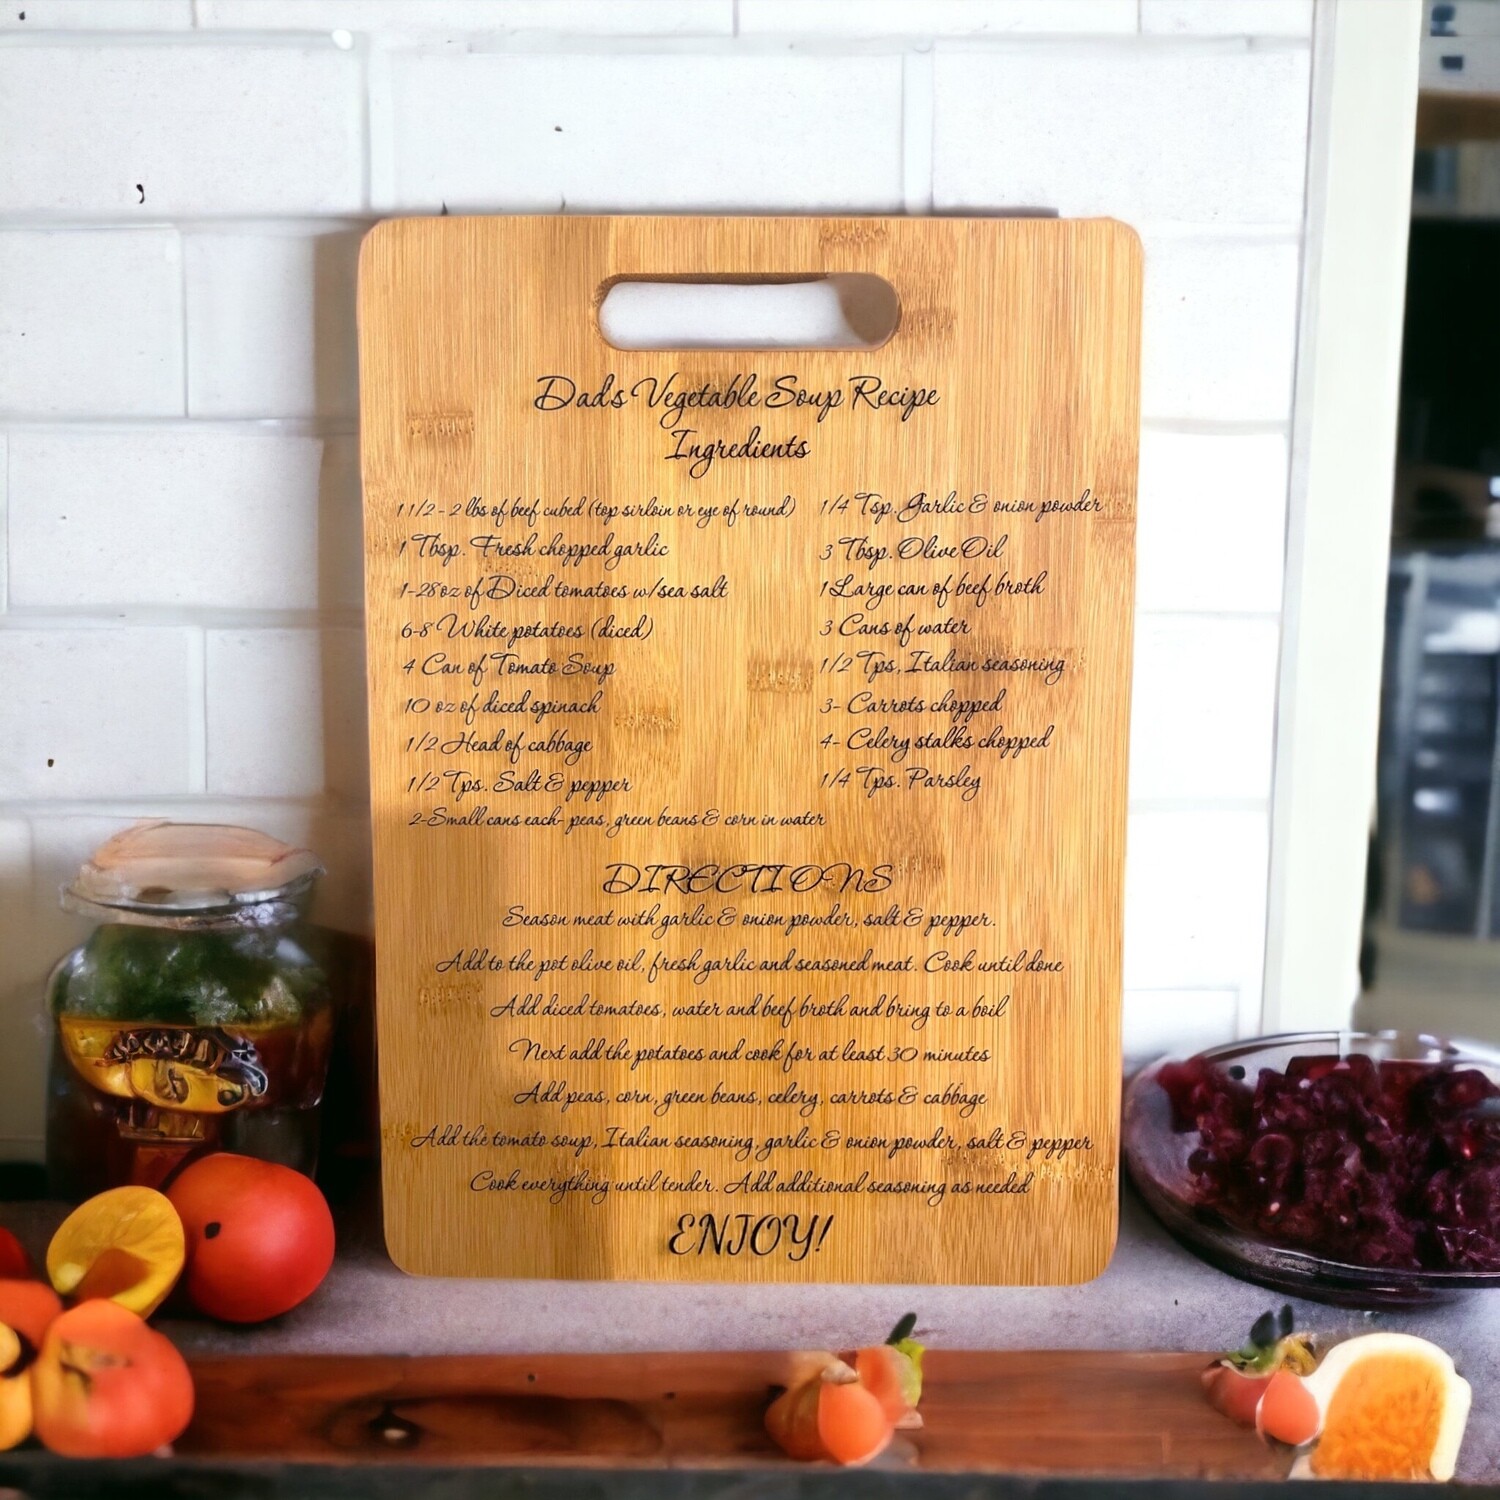 Dad's Vegetable Soup Recipe
Ingredients
1 1/2 - 2 lbs of beef cubed (top sirloin or eye of round)
1 Tbsp. Fresh chopped garlic
1-28oz of Diced tomatoes w/sea salt
6-8 White potatoes (diced)
4 Can of Tomato Soup
10 oz of diced spinach
1/2 Head of cabbage
1/2 Tps. Salt & pepper
2-Small cans each- peas, green beans & corn in water
1/4 Tsp. Garlic & onion powder
3 Tbsp. Olive Oil
1 Large can of beef broth
3 Cans of water
1/2 Tps, Italian seasoning
3- Carrots chopped
4- Celery stalks chopped
1/4 Tps. Parsley
DIRECTIONS
Season meat with garlic & onion powder, salt & pepper.
Add to the pot olive oil, fresh garlic and seasoned meat. Cook until done
Add diced tomatoes, water and beef broth and bring to a boil
Next add the potatoes and cook for at least 30 minutes
Add peas, corn, green beans, celery, carrots & cabbage
Add the tomato soup, Italian seasoning, garlic & onion powder, salt & pepper
Cook everything until tender. Add additional seasoning as needed
ENJOY!